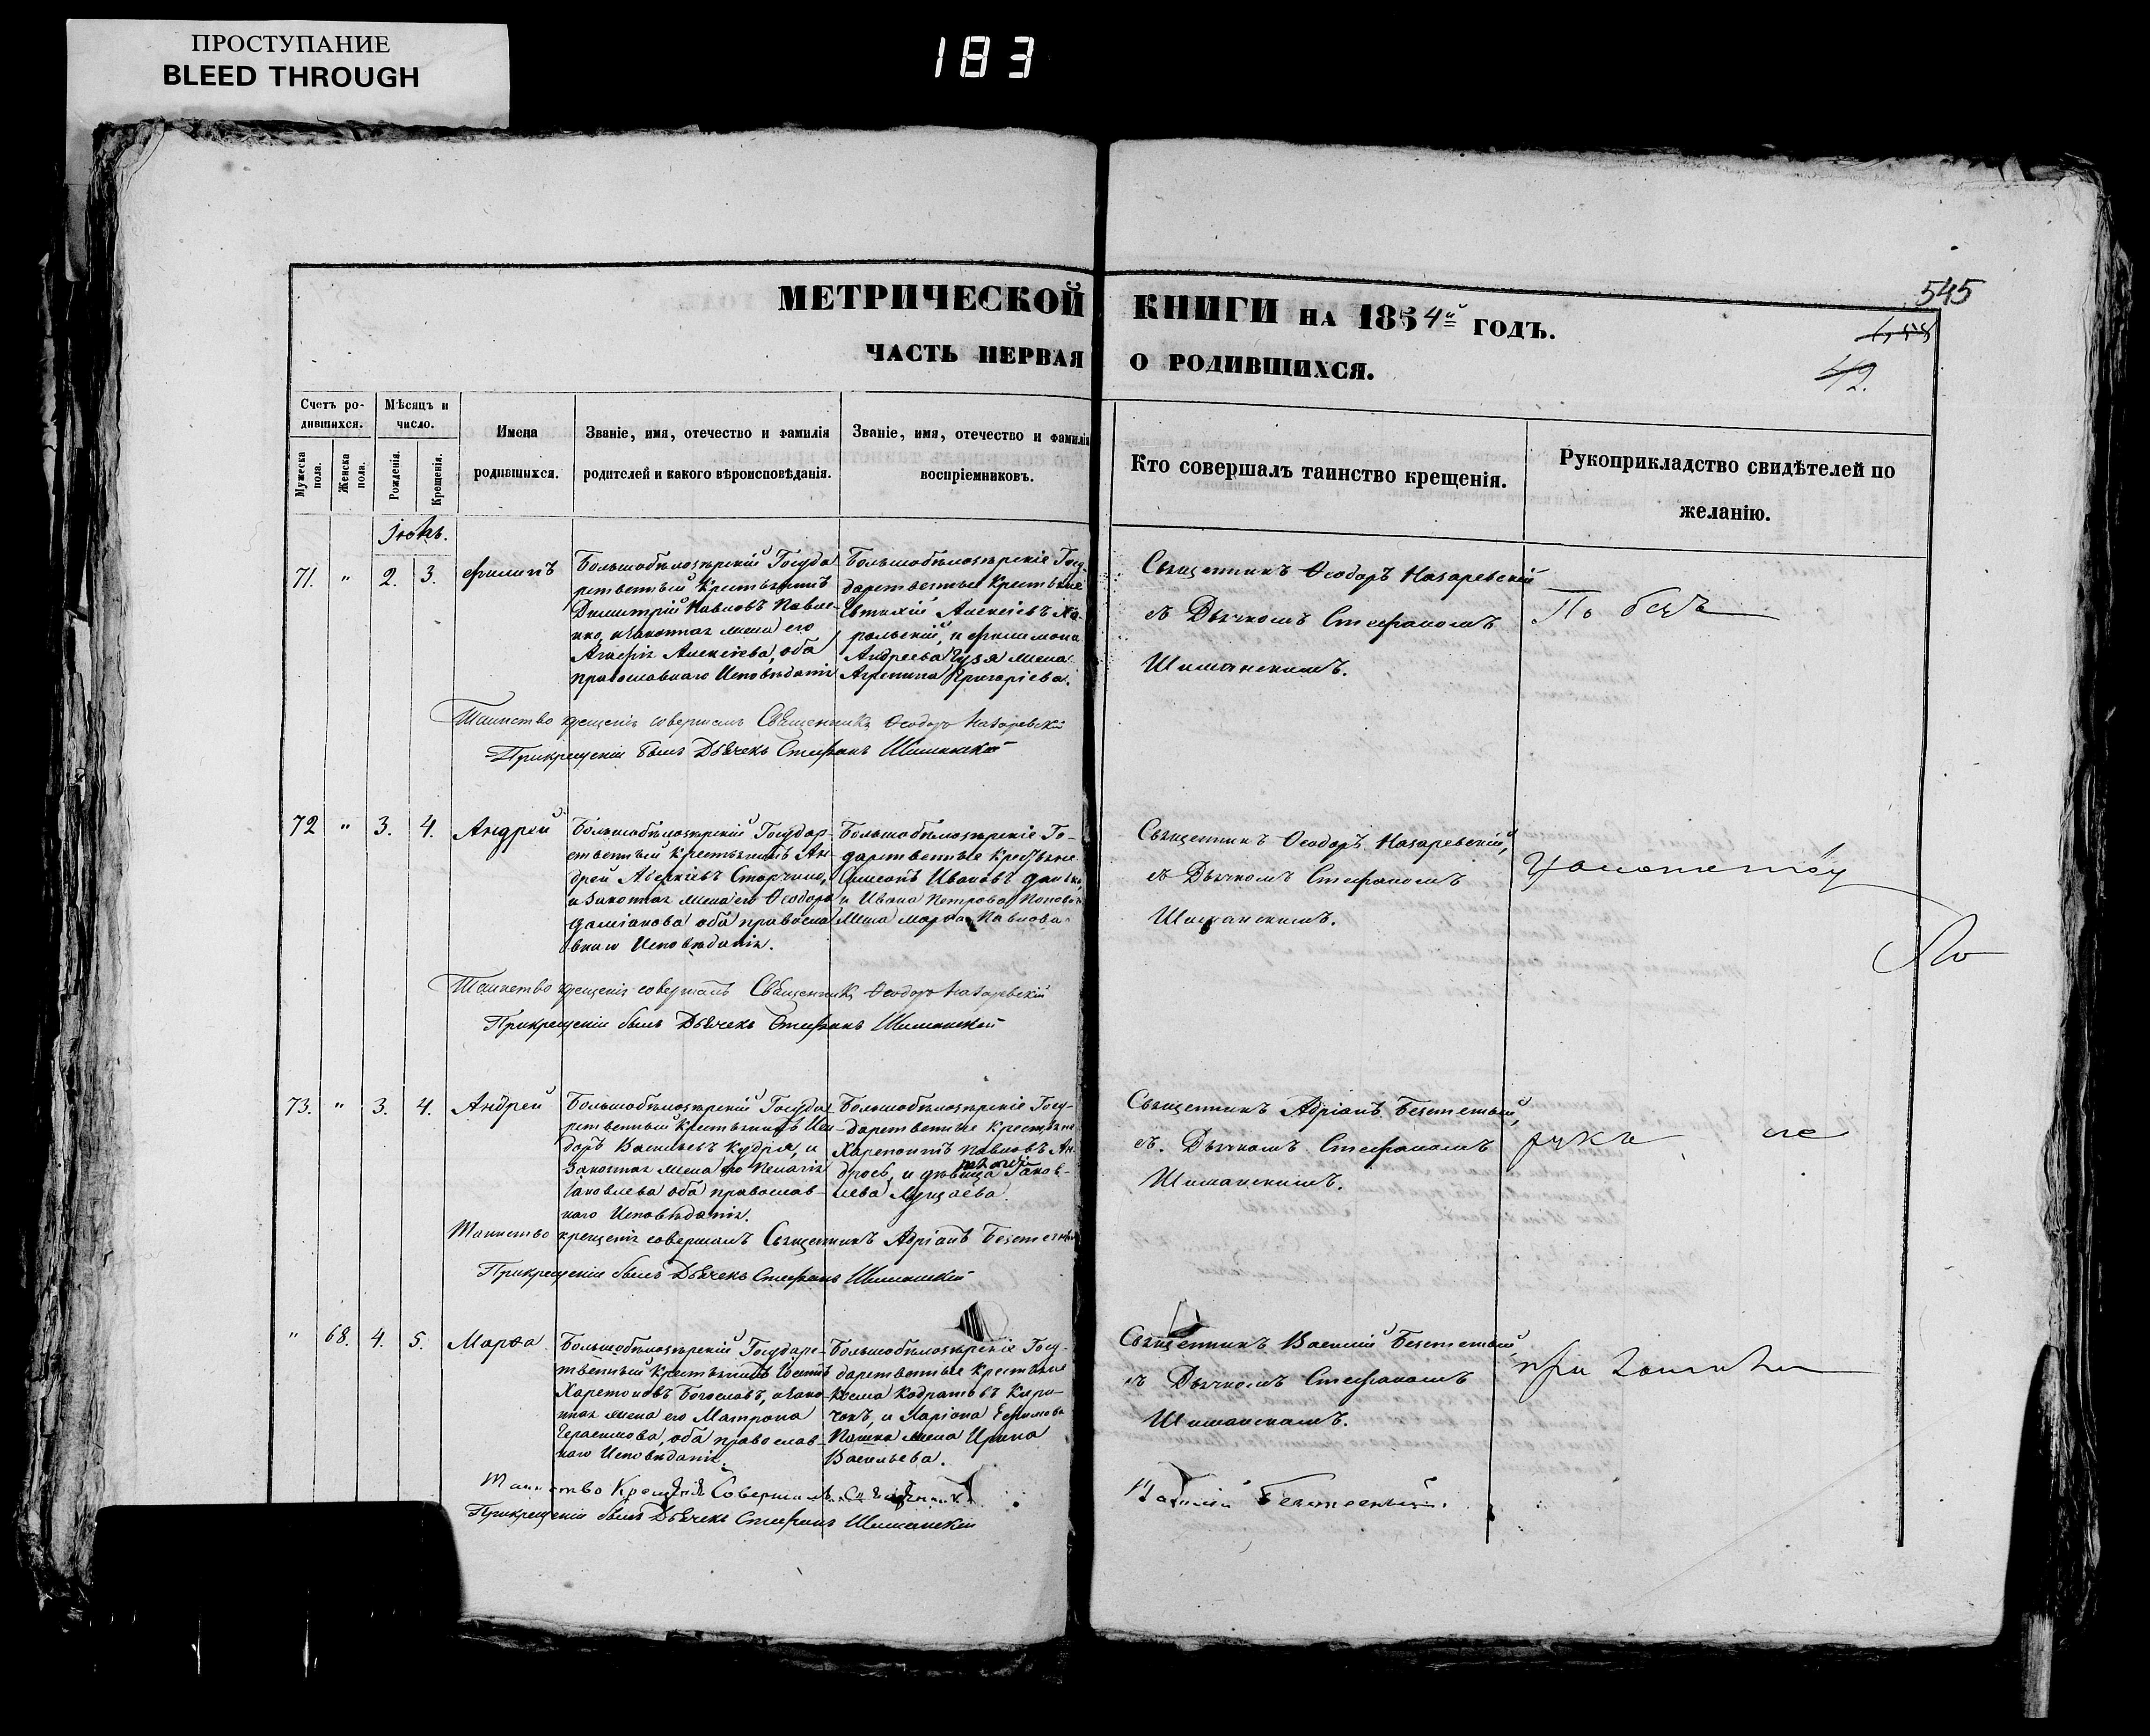 ПРОСТУПАНИЕ
BLEED THROUGH
183
545
42.
МЕТРИЧЕСКОЙ КНИГИ НА 1854й ГОДЪ.
ЧАСТЬ ПЕРВАЯ О РОДИВШИХСЯ.
Счетъ ро-
дившихся.
Мужеска пола.
Женска пола.
Мѣсяцъ и
число.
Рожденія.
Крещенія.
Имена
родившихся.
Званіе, имя, отечество и фамилія
родителей и какого вѣроисповѣданія.
Званіе, имя, отечество и фамилія
воспріемниковъ.
Кто совершалъ таинство крещенія.
Рукоприкладство свидѣтелей по
желанію.
71. " 2. 3. Филипъ
Большобѣлозѣрскій Госуда
рственный Крестьянинъ
Димитрій Павловъ Павле-
нко, и законная жена его
Агафія Алексѣева, оба
православнаго Исповѣданія
Большобѣлозѣрскіе Госу-
дарственные Крестьяне
Евтихій Алексѣевъ Хо-
рольскій, и Филимона
Андреева Гузя жена
Агрепина Григоріева.
Священникъ Ѳеодоръ Назаревскій
съ Дьячкомъ Стефаномъ
Шиманскимъ.
Таинство крещенія совершалъ Священникъ Ѳеодоръ Назаревскій
Прикрещеніи былъ Дьячекъ Стефанъ Шиманскій
72 " 3. 4. Андрей
Большобѣлозѣрскій Государ-
ственный крестьянинъ Ан-
дрей Сторчило,
и законная жена его Ѳеодора
Даміанова оба правосла
внаго Исповѣданія.
Большобѣлозѣрскіе Го-
дарственные Крестьяне
Симеонъ Ивановъ
и Ивана Петрова
жена Марѳа Павлова
Священникъ Ѳеодоръ Назаревскій,
съ Дьячкомъ Стефаномъ
Шиманскимъ.
Таинство крещенія совершалъ Священникъ Ѳеодоръ Назаревскій
Прикрещеніи былъ Дьячекъ Стефанъ Шиманскій
73. " 3. 4. Андрей
Большобѣлозѣрскій Госуда
рственный Крестьянинъ Иси-
доръ Васильевъ Кудря, и
Законная жена его Пелагія
Іаковлева оба православ-
наго Исповѣданія.
Большобѣлозѣрскіе Госу-
дарственные Крестьяне
Харитонъ Павловъ Ан-
дросъ, и дѣвица Іаков-
лева
Священникъ Адріанъ Безсмертный,
съ Дьячкомъ Стефаномъ
Шиманскимъ.
Таинство крещенія совершалъ Священникъ Адріанъ
Прикрещеніи былъ Дьячекъ Стефанъ Шиманскій
" 68. 4. 5. Марѳа
Большобѣлозѣрскій Государс-
твенный крестьянинъ
Харитоновъ Богославъ, и зако
нная жена его Матрона
Герасимова, оба православ-
наго Исповѣданія.
Большобѣлозѣрскіе Госу-
дарственные Крестьяне
Козма Кодратовъ Кири-
чокъ, и Ларіона Ефимова
жена Ирина
Васильева.
Священникъ Василій Безсмертный,
съ Дьячкомъ Стефаномъ
Шиманскимъ.
Таинство Крещенія Совершалъ Священникъ Василій
Прикрещеніи былъ Дьячекъ Стефанъ Шиманскій